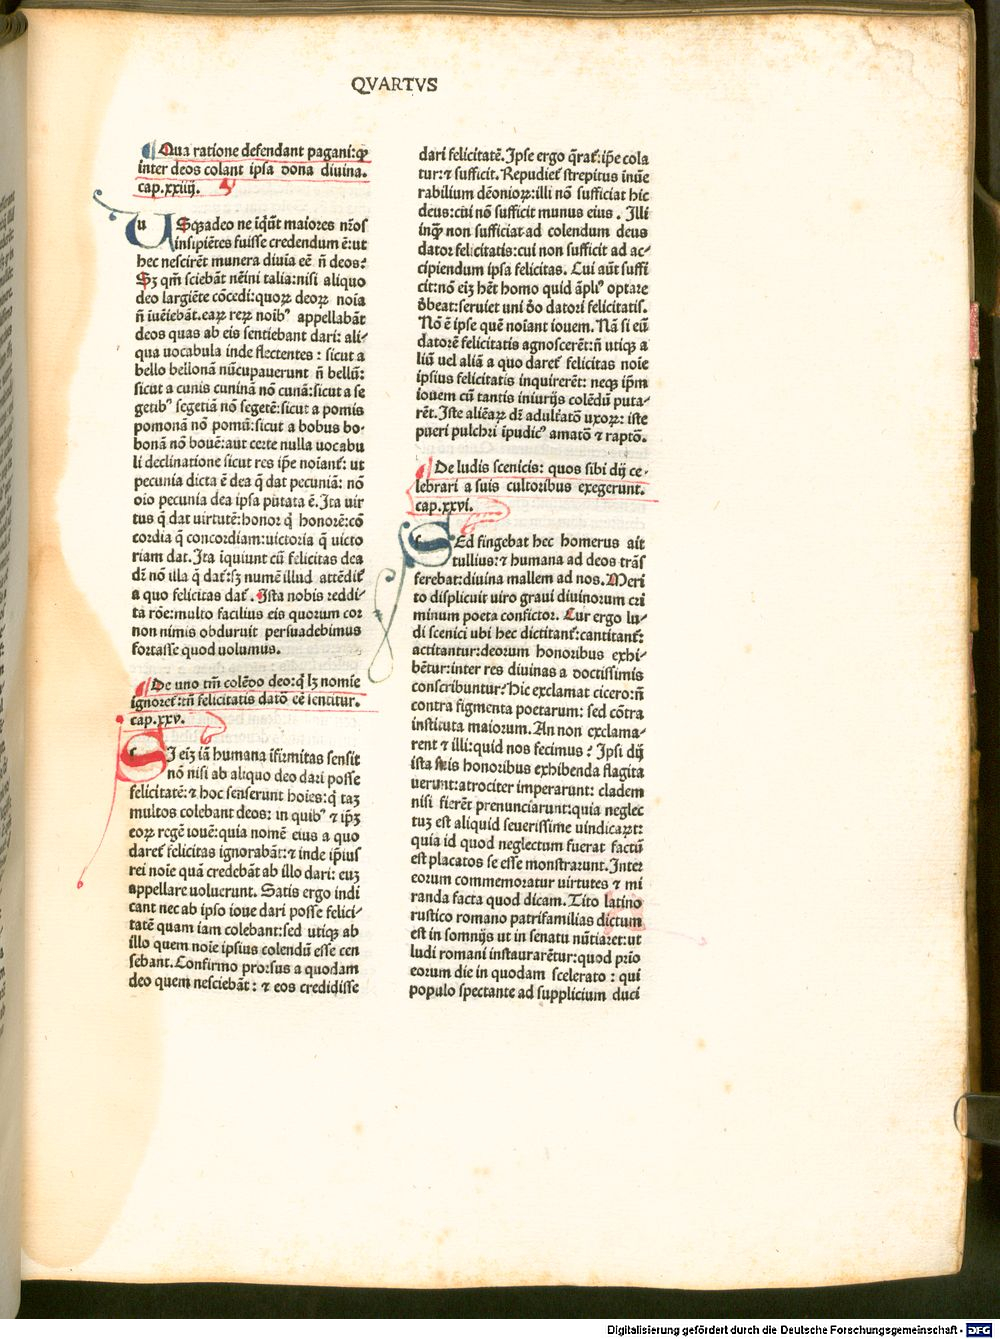 QVARTVS
Qua ratione defendant pagani: ꝙ
inter deos colant ipsa dona diuina.
cap.xxiiij.
uSqꝫadeo ne īq̄ūt maiores nr̄os
insipiētes fuisse credendum ē: ut
hec nescirēt munera diuīa eē n̄ deos?
Sꝫ qm̄ sciebāt nēini talia: nisi aliquo
deo largiēte cōcedi: quoꝝ deoꝝ noīa
n̄ iuēiebāt. eaꝝ reꝝ noibꝰ appellabāt
deos quas ab eis sentiebant dari: ali⸗
qua uocabula inde flectentes: sicut a
bello bellonā nūcupauerunt n̄ bellū:
sicut a cunis cuninā nō cunā: sicut a se
getibꝰ segetiā nō segetē: sicut a pomis
pomonā nō pomū: sicut a bobus bo⸗
bonā nō bouē: aut certe nulla uocabu
li declinatione sicut res ip̄e noīant᷑: ut
pecunia dicta ē dea q̄ dat pecuniā: nō
oīo pecunia dea ipsa putata ē. Ita uir
tus q̄ dat uirtutē: honor q̄ honorē: cō
cordia q̄ concordiam: uictoria q̄ uicto
riam dat. Ita iquiunt cū felicitas dea
dr̄ nō illa q̄ dat᷑: sꝫ numē illud attēdit᷑
a quo felicitas dat᷑. Ista nobis reddi⸗
ta rōe: multo facilius eis quorum cor
non nimis obduruit persuadebimus
fortasse quod uolumus.
De uno tm̄ colēdo deo: q̄ lꝫ nomīe
ignoret᷑: tn̄ felicitatis datō eē sentitur.
cap.xxv.
SI eiꝫ iā humana īfirmitas sensit
nō nisi ab aliquo deo dari posse
felicitatē: ⁊ hoc senserunt hoīes: q̄ taꝫ
multos colebant deos: in quibꝰ ⁊ ip̄ꝫ
eoꝝ regē iouē: quia nomē eius a quo
daret᷑ felicitas ignorabāt: ⁊ inde ip̄ius
rei noīe quā credebāt ab illo dari: euꝫ
appellare uolucrunt. Satis ergo indi
cant nec ab ipso ioue dari posse felici⸗
tatē quam iam colebant: sed utiqꝫ ab
illo quem noīe ipsius colendū esse cen
sebant. Confirmo prorsus a quodam
deo quem nesciebāt: ⁊ eos credidisse
dari felicitatē. Ipse ergo q̄rat᷑: ip̄e cola
tur: ⁊ sufficit. Repudiet᷑ strepitus inūe
rabilium dēonioꝝ: illi nō sufficiat hic
deus: cui nō sufficit munus eius. Illi
inqꝫ non sufficiat ad colendum deus
dator felicitatis: cui non sufficit ad ac⸗
cipiendum ipsa felicitas. Cui aūt suffi
cit: nō eiꝫ hēt homo quid āpliꝰ optare
ꝺ̄beat: seruiet uni ꝺ̄o datori felicitatis.
Nō ē ipse quē noīant iouem. Nā si eū
datorē felicitatis agnoscerēt: n̄ utiqꝫ a
liū uel aliā a quo daret᷑ felicitas noīe
ipsius felicitatis inquirerēt: neqꝫ ip̄m
iouem cū tantis iniurijs colēdū puta⸗
rēt. Iste aliēaꝝ dr̄ adultatō uxoꝝ: iste
pueri pulchri ipudicꝰ amatō ⁊ raptō.
De ludis scenicis: quos sibi dij ce⸗
lebrari a suis cultoribus exegerunt.
cap.xxvi.
SEd fingebat hec homerus ait
tullius: ⁊ humana ad deos trās
ferebat: diuina mallem ad nos. Meri
to displicuit uiro graui diuinorum cri
minum poeta confictor. Cur ergo lu⸗
di scenici ubi hec dictitant᷑: cantitant᷑:
actitantur: deorum honoribus exhi⸗
bētur: inter res diuinas a doctissimis
conscribuntur? Hic exclamat cicero: n̄
contra figmenta poetarum: sed cōtra
instituta maiorum. An non exclama⸗
rent ⁊ illi: quid nos fecimus? Ipsi dij
ista suis honoribus exhibenda flagita
uerunt: atrociter imperarunt: cladem
nisi fierēt prenunciarunt: quia neglec
tuꝫ est aliquid seuerissime uindicaꝝt:
quia id quod neglectum fuerat factū
est placatos se esse monstrarunt. Inter
eorum commemoratur uirtutes ⁊ mi
randa facta quod dicam. Tito latino
rustico romano patrifamilias dictum
est in somnijs ut in senatu nūtiaret: ut
ludi romani instaurarētur: quod prīo
eorum die in quodam scelerato: qui
populo spectante ad supplicium duci
Digitalisierung gefördert durch die Deutsche Forschungsgemeinschaft - DFG